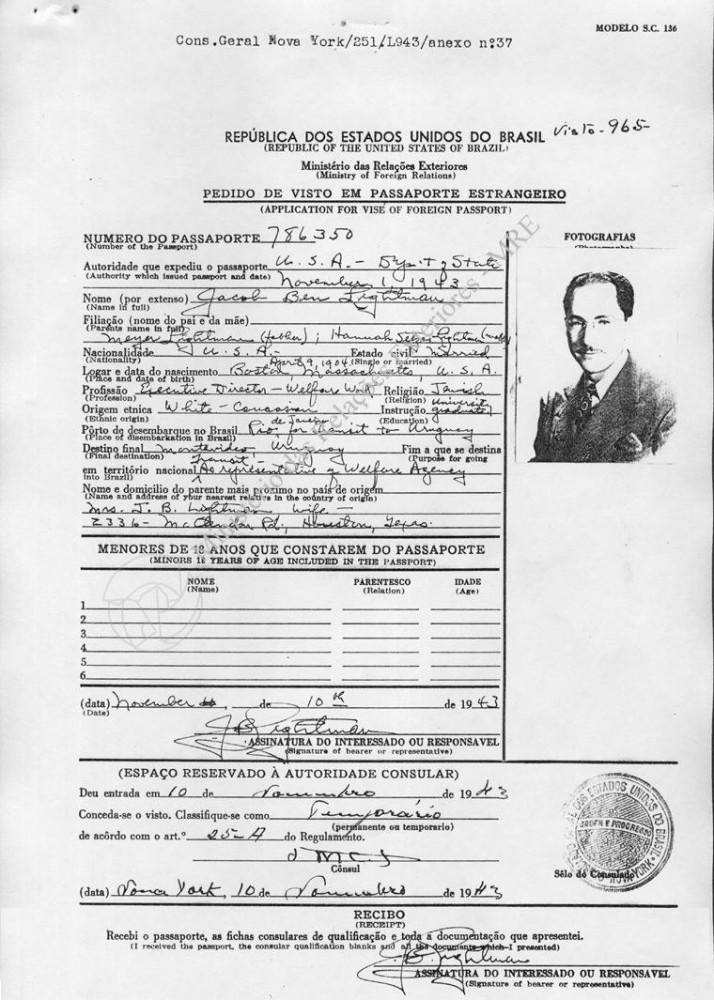 MODELO S.C. 136
Cons.Geral Nova York/251/L943/anexo nº37
REPÚBLICA DOS ESTADOS UNIDOS DO BRASIL Visto - 965
(REPUBLIC OF THE UNITED STATES OF BRAZIL)
Ministério das Relações Exteriores
(Ministry of Foreign Relations)
PEDIDO DE VISTO EM PASSAPORTE ESTRANGEIRO
(APPLICATION FOR VISÉ OF FOREIGN PASSPORT)
NUMERO DO PASSAPORTE 786350
(Number of the Passport)
FOTOGRAFIAS
Autoridade que expediu o passaporte U.S.A. - Dep't of State
(Authority which issued passport and date) November 1, 1943
Nome (por extenso) Jacob Ben Lightman
(Name in full)
Filiação (nome do pai e da mãe)
(Parents name in full) Meyer Lightman (father); Hannah Lightman
Nacionalidade U.S.A. - Estado civil Married
(Nationality) April 9, 1904 (Single or married)
Logar e data do nascimento Boston, Massachusetts, U.S.A.
(Place and date of birth)
Profissão Executive Director - Welfare Work Religião Jewish
(Profession) (Religion) University
Origem etnica White - Caucasian Instrução graduate
(Ethnic origin) de Janeiro (Education)
Pôrto de desembarque no Brasil Rio, for transit to Uruguay
(Place of disembarkation in Brazil)
Destino final Montevideo, Uruguay Fim a que se destina
(Final destination) Transit - (Purpose for going
em território nacional As representative of Welfare Agency
into Brazil)
Nome e domicilio do parente mais proximo no país de origem
(Name and address of your nearest relative in the country of origin)
Mrs. J. B. Lightman wife -
2336 - Rd, Houston, Texas.
MENORES DE 18 ANOS QUE CONSTAREM DO PASSAPORTE
(MINORS 18 YEARS OF AGE INCLUDED IN THE PASSPORT)
NOME PARENTESCO IDADE
(Name) (Relation) (Age)
1
2
3
4
5
6
(data) November, de 10th de 1943
(Date)
J B Lightman
ASSINATURA DO INTERESSADO OU RESPONSAVEL
(Signature of bearer or representative)
(ESPAÇO RESERVADO À AUTORIDADE CONSULAR)
Deu entrada em 10 de Novembro de 1943
Conceda-se o visto. Classifique-se como Temporário
(permanente ou temporario)
de acôrdo com o art.º 25-A do Regulamento.
Cônsul
Sêlo do Consulado
(data) Nova York, 10 de Novembro de 1943
RECIBO
(RECEIPT)
Recebi o passaporte, as fichas consulares de qualificação e toda a documentação que apresentei.
(I received the passport, the consular qualification blanks and all the documents which I presented)
J B Lightman
ASSINATURA DO INTERESSADO OU RESPONSAVEL
(Signature of bearer or representative)